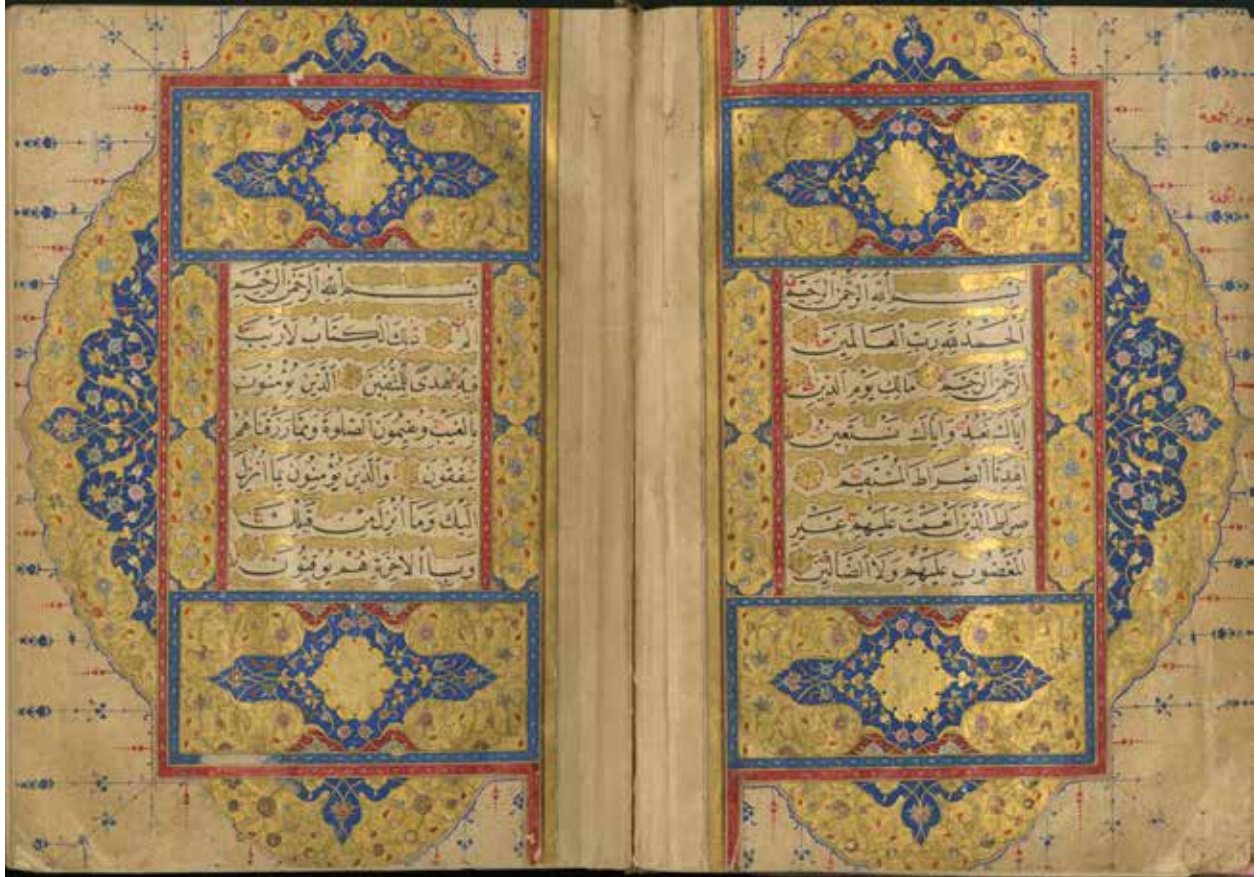 بسم الله الرحمن الرحيم
الحمد لله رب العالمين
الرحمن الرحيم مالك يوم الدين
اياك نعبد واياك نستعين
اهدنا الصراط المستقيم
صراط الذين انعمت عليهم غير
المغضوب عليهم ولا الضالين
بسم الله الرحمن الرحيم
الم ذلك الكتاب لا ريب
فيه هدى للمتقين الذين يؤمنون
بالغيب ويقيمون الصلوة ومما رزقناهم
ينفقون والذين يؤمنون بما انزل
اليك وما انزل من قبلك
وبالاخرة هم يوقنون